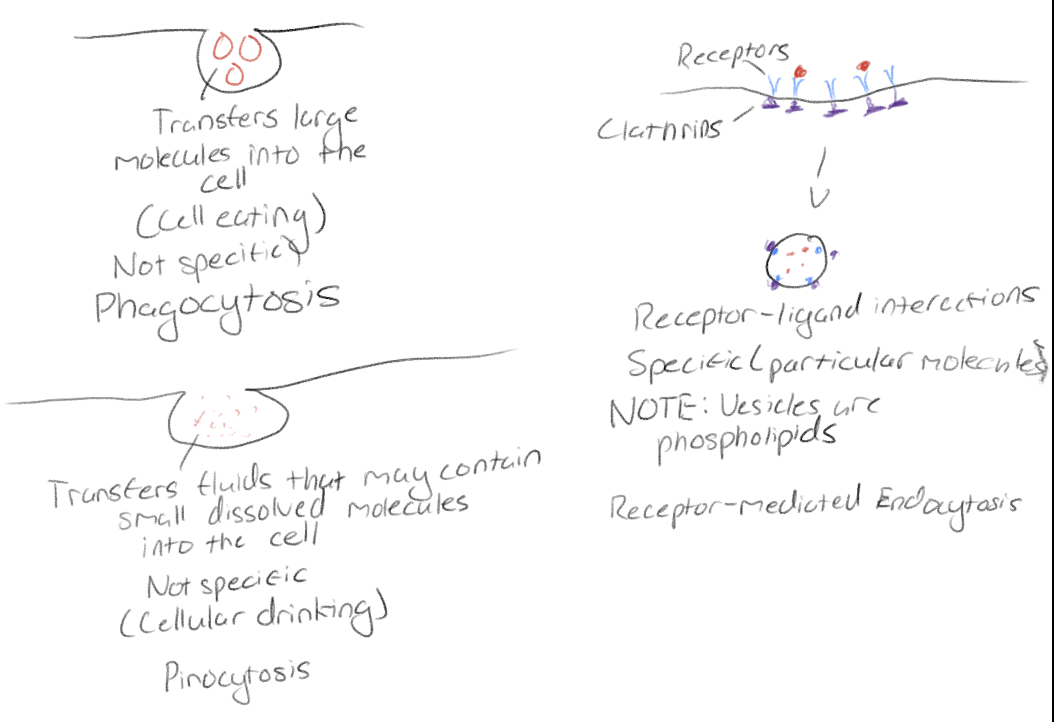 Transfers large
molecules into the
cell
(Cell eating)
Not specific
Phagocytosis
Transfers fluids that may contain
small dissolved molecules
into the cell
Not specific
(Cellular drinking)
Pinocytosis
Receptors
Clathrins
Receptor-ligand interactions
Specific (particular molecules)
NOTE: Vesicles are
phospholipids
Receptor-mediated Endocytosis